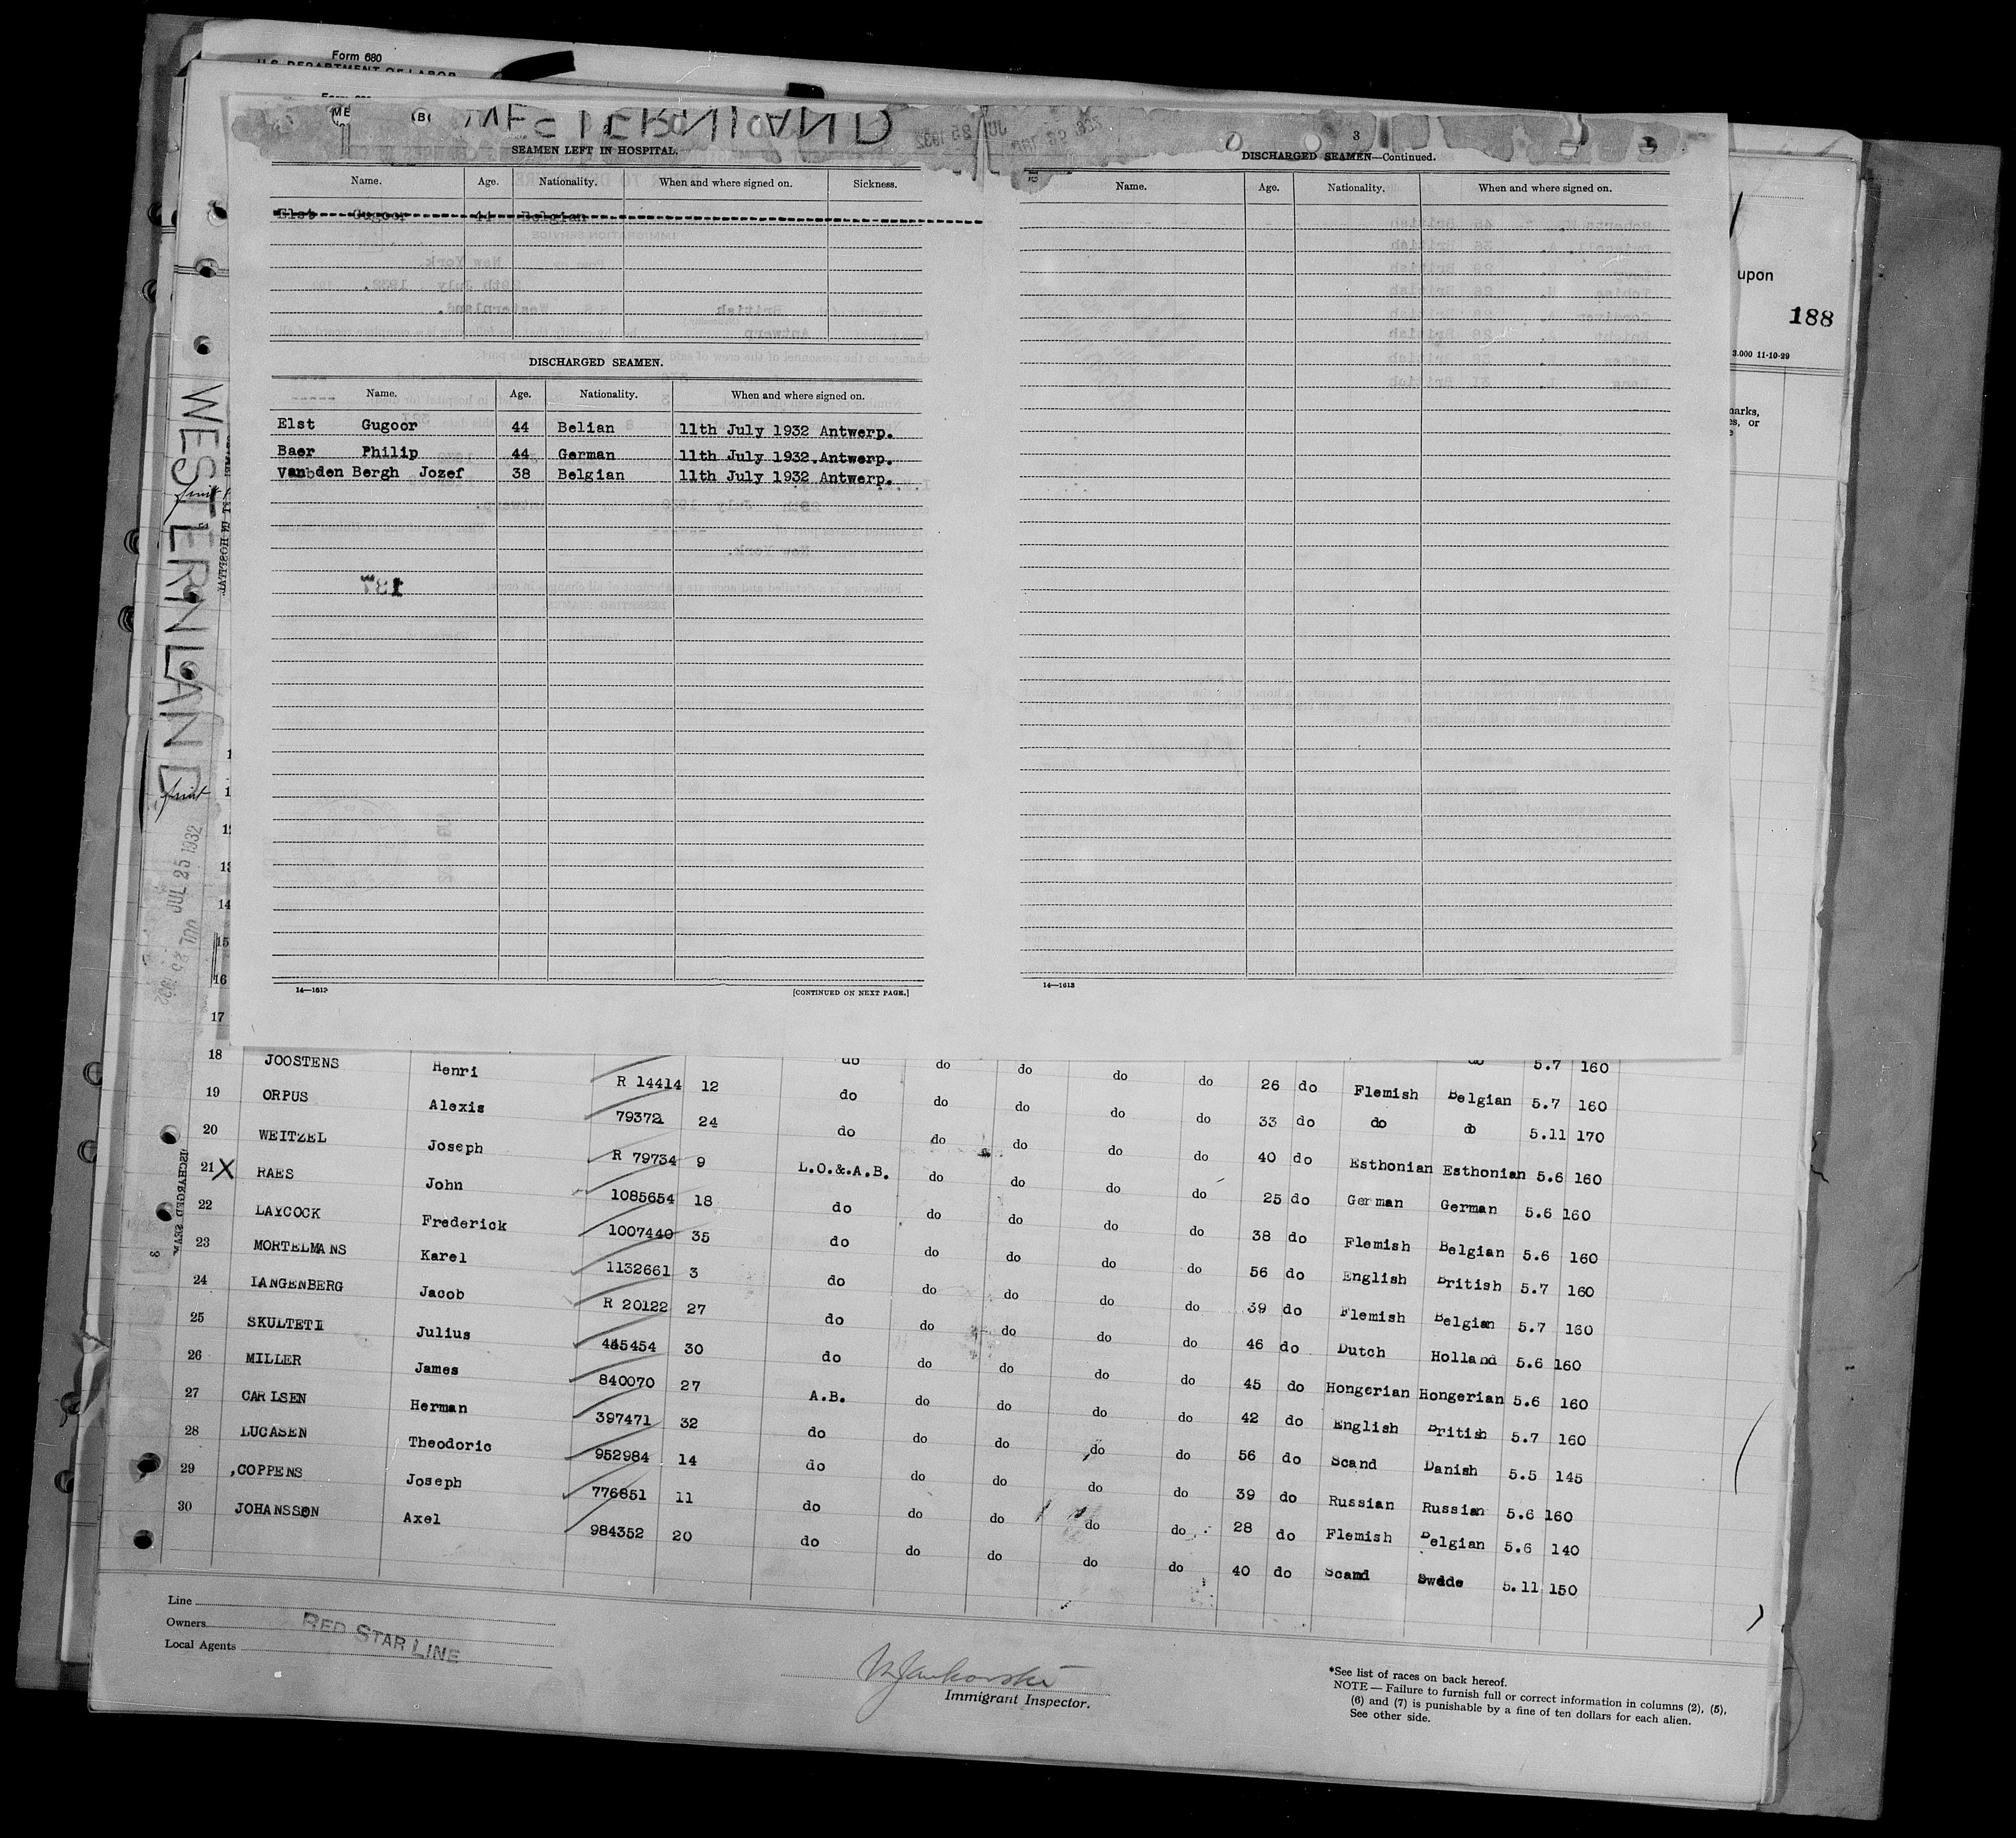 Form 680
U.S. DEPARTMENT OF LABOR
WESTERNLAND
SEAMEN LEFT IN HOSPITAL.
Name. Age. Nationality. When and where signed on. Sickness.
Elst Gugoor 44 Belgian
DISCHARGED SEAMEN.
Name. Age. Nationality. When and where signed on.
Elst Gugoor 44 Belian 11th July 1932 Antwerp.
Baer Philip 44 German 11th July 1932.Antwerp.
Van den Bergh Jozef 38 Belgian 11th July 1932 Antwerp.
187
14—1613
[CONTINUED ON NEXT PAGE.]
3
DISCHARGED SEAMEN—Continued.
Name. Age. Nationality. When and where signed on.
14—1613
upon
188
3.000 11-10-29
WESTERNLAND
JUL 25 1932
12
13
14
15
16 do 5.7 160
17 do do do do do 26 do Flemish Belgian 5.7 160
18 JOOSTENS Henri R 14414 12 do do do do do 33 do do do 5.11 170
19 ORPUS Alexis 79372 24 do do do do do 40 do Esthonian Esthonian 5.6 160
20 WEITZEL Joseph R 79734 9 L.O.&.A.B. do do do do 25 do German German 5.6 160
21 X RAES John 1085654 18 do do do do do 38 do Flemish Belgian 5.6 160
22 LAYCOCK Frederick 1007440 35 do do do do do 56 do English British 5.7 160
23 MORTELMANS Karel 1132661 3 do do do do do 39 do Flemish Belgian 5.7 160
24 LANGENBERG Jacob R 20122 27 do do do do do 46 do Dutch Holland 5.6 160
25 SKULTETI Julius 445454 30 do do do do do 45 do Hongerian Hongerian 5.6 160
26 MILLER James 840070 27 A.B. do do do do 42 do English British 5.7 160
27 CARLSEN Herman 397471 32 do do do do do 56 do Scand Danish 5.5 145
28 LUCASEN Theodoric 952984 14 do do do do do 39 do Russian Russian 5.6 160
29 COPPENS Joseph 776851 11 do do do do do 28 do Flemish Belgian 5.6 140
30 JOHANSSON Axel 984352 20 do do do do do 40 do Scand Swede 5.11 150
Line
Owners
Local Agents
RED STAR LINE
Immigrant Inspector.
*See list of races on back hereof.
NOTE — Failure to furnish full or correct information in columns (2), (5),
(6) and (7) is punishable by a fine of ten dollars for each alien.
See other side.